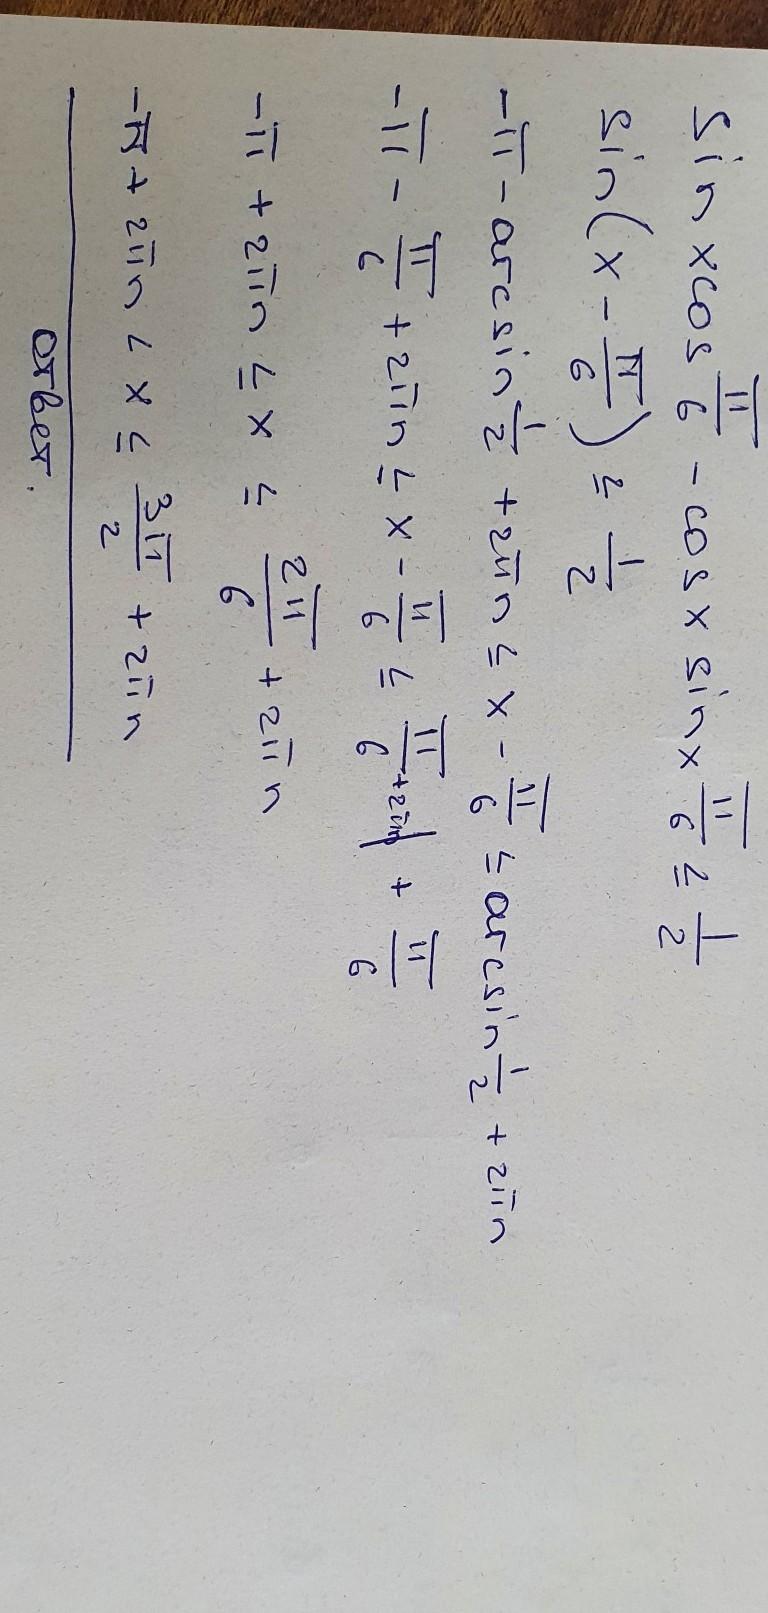 sin x cos π/6 - cos x sin x π/6 ≤ 1/2
sin(x - π/6) ≤ 1/2
-π - arcsin 1/2 + 2πn ≤ x - π/6 ≤ arcsin 1/2 + 2πn
-π - π/6 + 2πn ≤ x - π/6 ≤ π/6 + 2πn + π/6
-π + 2πn ≤ x ≤ 2π/6 + 2πn
-π + 2πn < x ≤ 3π/2 + 2πn
ответ.